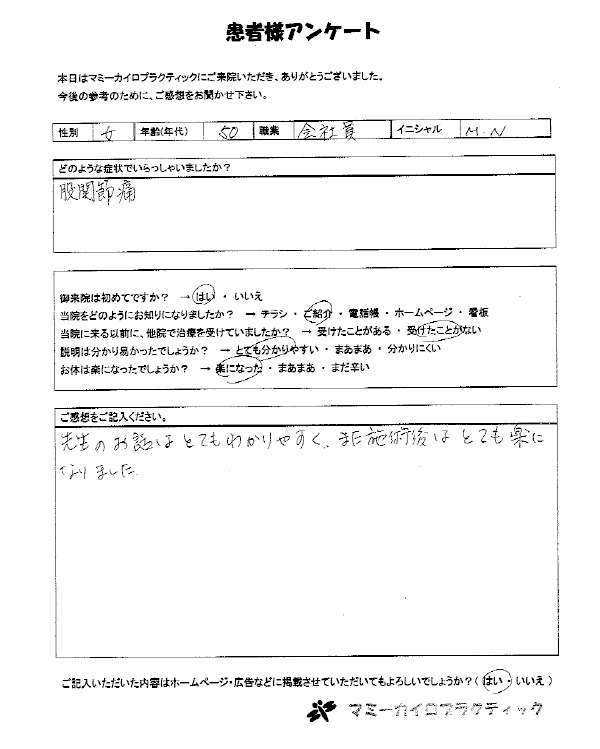 患者様アンケート
本日はマミーカイロプラクティックにご来院いただき、ありがとうございました。
今後の参考のために、ご感想をお聞かせ下さい。
性別 女 年齢(年代) 50 職業 会社員 イニシャル M.N
どのような症状でいらっしゃいましたか?
股関節痛
御来院は初めてですか? → はい ・ いいえ
当院をどのようにお知りになりましたか? → チラシ ・ ご紹介 ・ 電話帳 ・ ホームページ ・ 看板
当院に来る以前に、他院で治療を受けていましたか? → 受けたことがある ・ 受けたことがない
説明は分かり易かったでしょうか? → とても分かりやすい ・ まあまあ ・ 分かりにくい
お体は楽になったでしょうか? → 楽になった ・ まあまあ ・ まだ辛い
ご感想をご記入ください。
先生のお話はとてもわかりやすく、また施術後はとても楽に
なりました。
ご記入いただいた内容はホームページ・広告などに掲載させていただいてもよろしいでしょうか?( はい ・ いいえ )
マミーカイロプラクティック